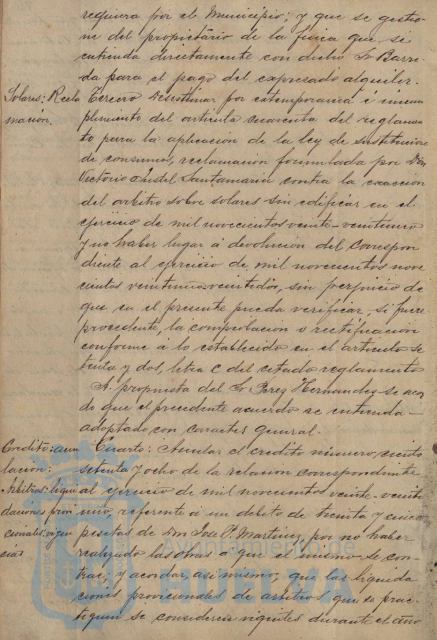 requiera por el Municipio; y que se gestio-
ne del propietario de la finca que se
entienda directamente con dicho Sr Barri-
da para el pago del expresado alquiler.
Solares: Recla-
macion.
Tercero Desestimar por extemporanea é incum
plimiento del articulo cuarenta del reglamen
to para la aplicacion de la ley de sustitucion
de consumos, reclamación formulada por Don
Victorio Santamaria contra la exaccion
del arbitrio sobre solares sin edificar en el
ejercicio de mil novecientos veinte-veintiuno
y no haber lugar á devolucion del correspon
diente al ejercicio de mil novecientos nove
cientos veintiuno veintidos, sin perjuicio de
que en el presente pueda verificar, si fuere
procedente, la comprobacion o rectificacion
conforme á lo establecido en el articulo se
tenta y dos, letra C del citado reglamento
A propuesta del Sr Perez Hernandez se acor
do que el precedente acuerdo se entienda
adoptado con caracter general.
Credito: anu
lacion:
Cuarto: Anular el credito número ciento
setenta y ocho de la relacion correspondiente
Arbitrios: liqui
daciones provi
cionales vigen
cias
al ejercicio de mil novecientos veinte-veinti
uno, referente á un debito de treinta y cinco
pesetas de Don José P. Martinez, por no haber
realizado las obras á que el mismo se con-
trae; y acordar, asi mismo, que las liquida
ciones provisionales de arbitrios que se prac-
tiquen se consideren vigentes durante el año
Ayuntamiento de
HUELVA